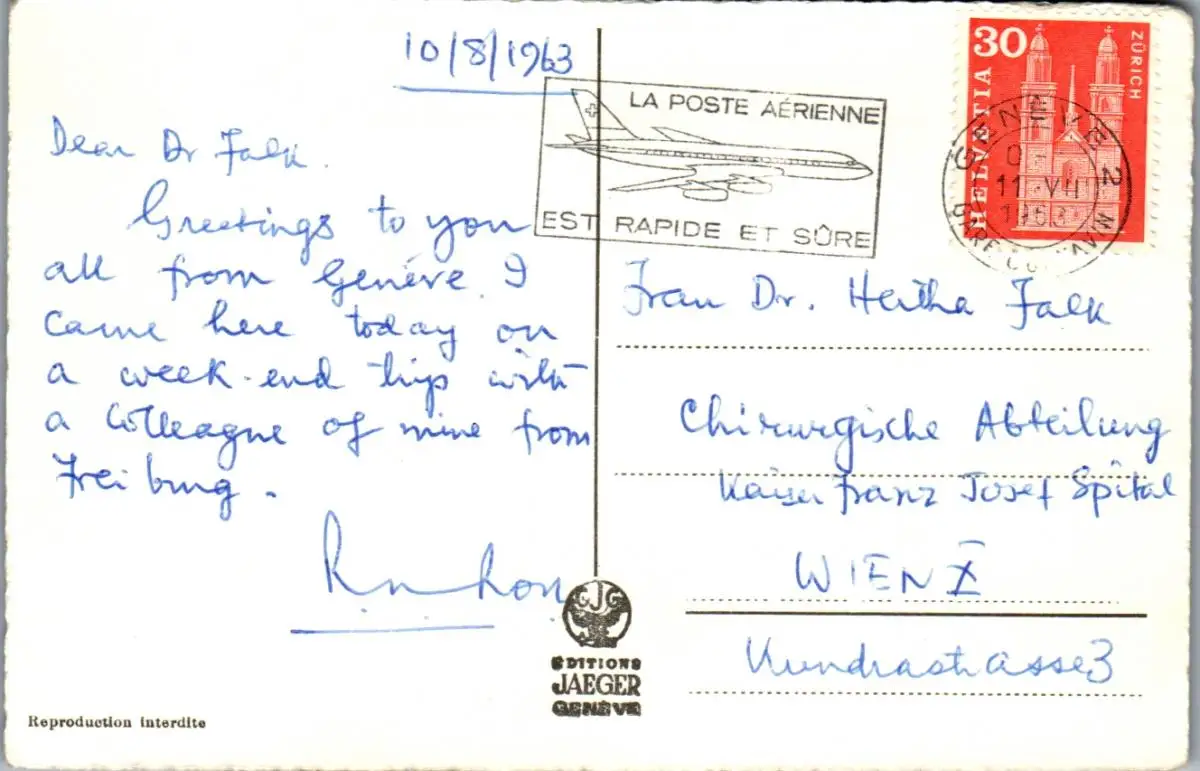 10/8/1963
Dear Dr Falk.
Greetings to you
all from Genève. I
came here today on
a week-end trip with
a colleague of mine from
Freiburg.
LA POSTE AÉRIENNE
EST RAPIDE ET SÛRE
30
HELVETIA
ZÜRICH
GENÈVE 2
11.VII
1963
Frau Dr. Hertha Falk
Chirurgische Abteilung
Kaiser Franz Josef Spital
WIEN X
Kundratstrasse 3
GJG
EDITIONS
JAEGER
GENÈVE
Reproduction interdite